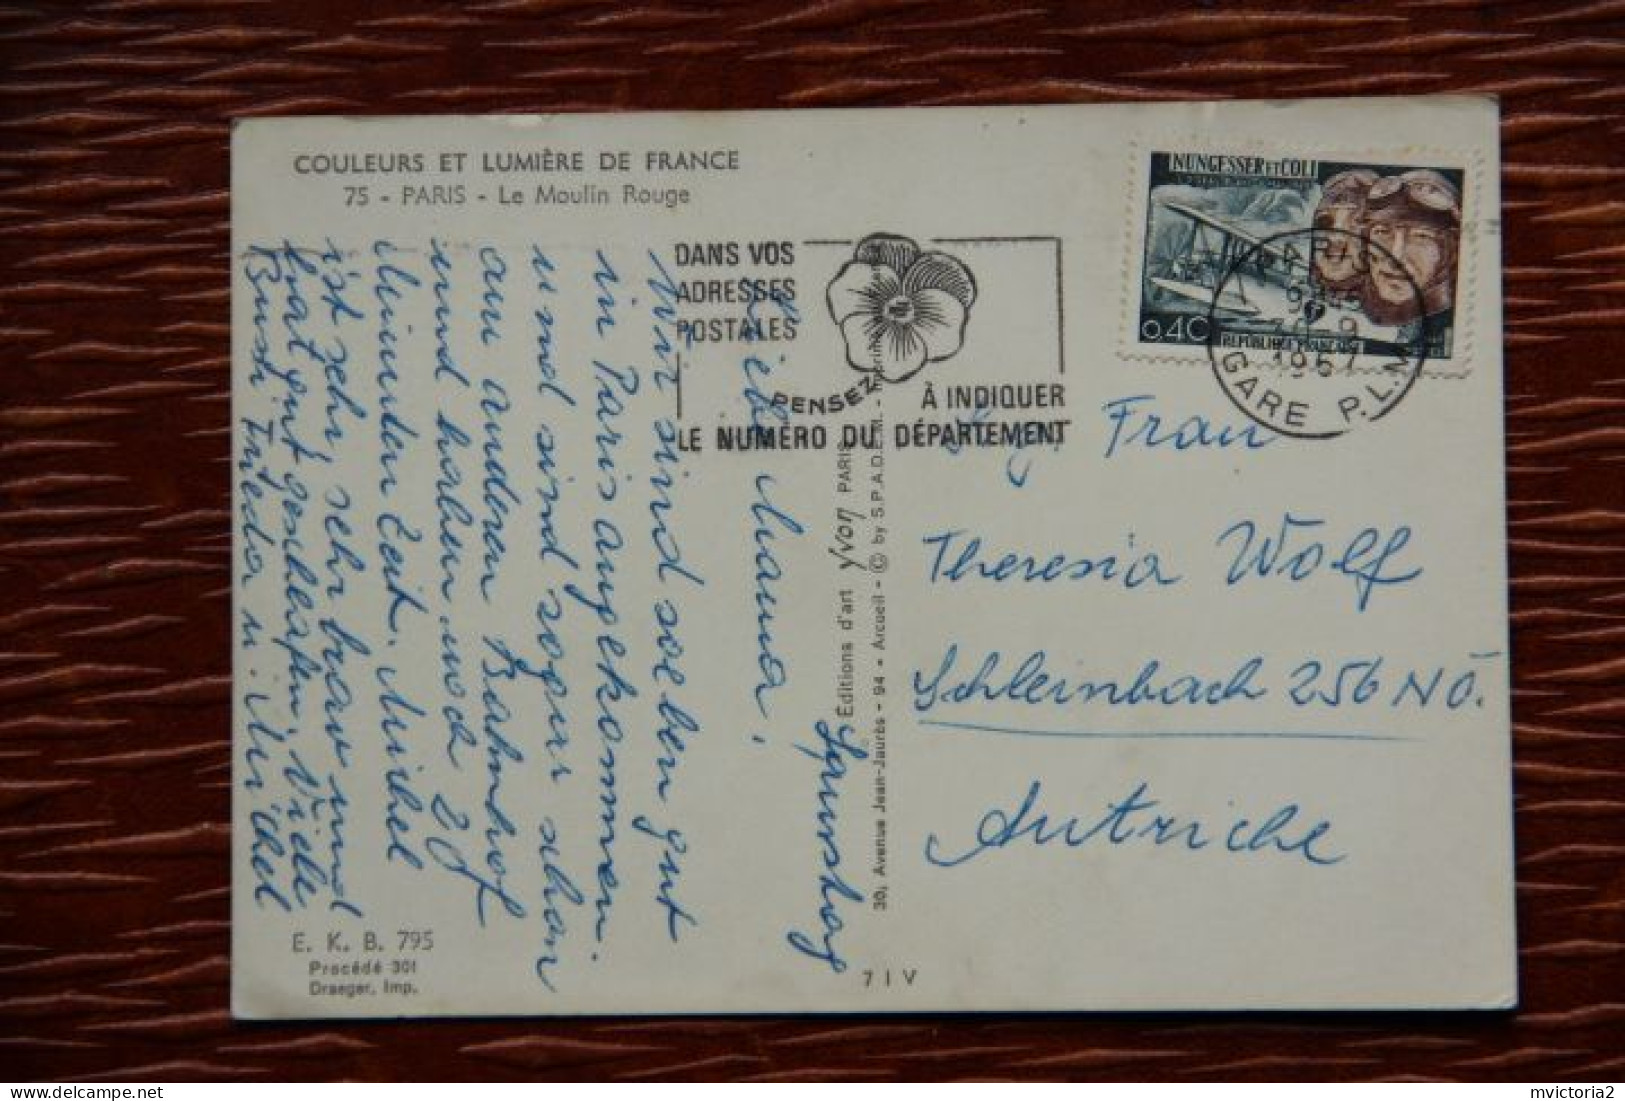 COULEURS ET LUMIÈRE DE FRANCE
75 - PARIS - Le Moulin Rouge
DANS VOS
ADRESSES
POSTALES
PENSEZ
À INDIQUER
LE NUMÉRO DU DÉPARTEMENT
NUNGESSER ET COLI
0,40
RÉPUBLIQUE FRANÇAISE
PARIS
1967
GARE P.L.M
Samstag
Liebe Mama,
Wir sind soeben gut
in Paris angekommen
und sind sogar schon
am anderen Bahnhof
und haben noch 20
Minuten Zeit. Michel
ist sehr, sehr brav und
hat gut geschlafen. Viele
Bussi Frieda u. Michel
Éditions d'art Yvon PARIS
30, Avenue Jean-Jaurès - 94 - Arcueil - © by S.P.A.D.E.M. -
Frau
Theresia Wolf
Schleinbach 256 NÖ.
Autriche
E. K. B. 795
Procédé 301
Draeger, Imp.
7 I V
mvictoria2